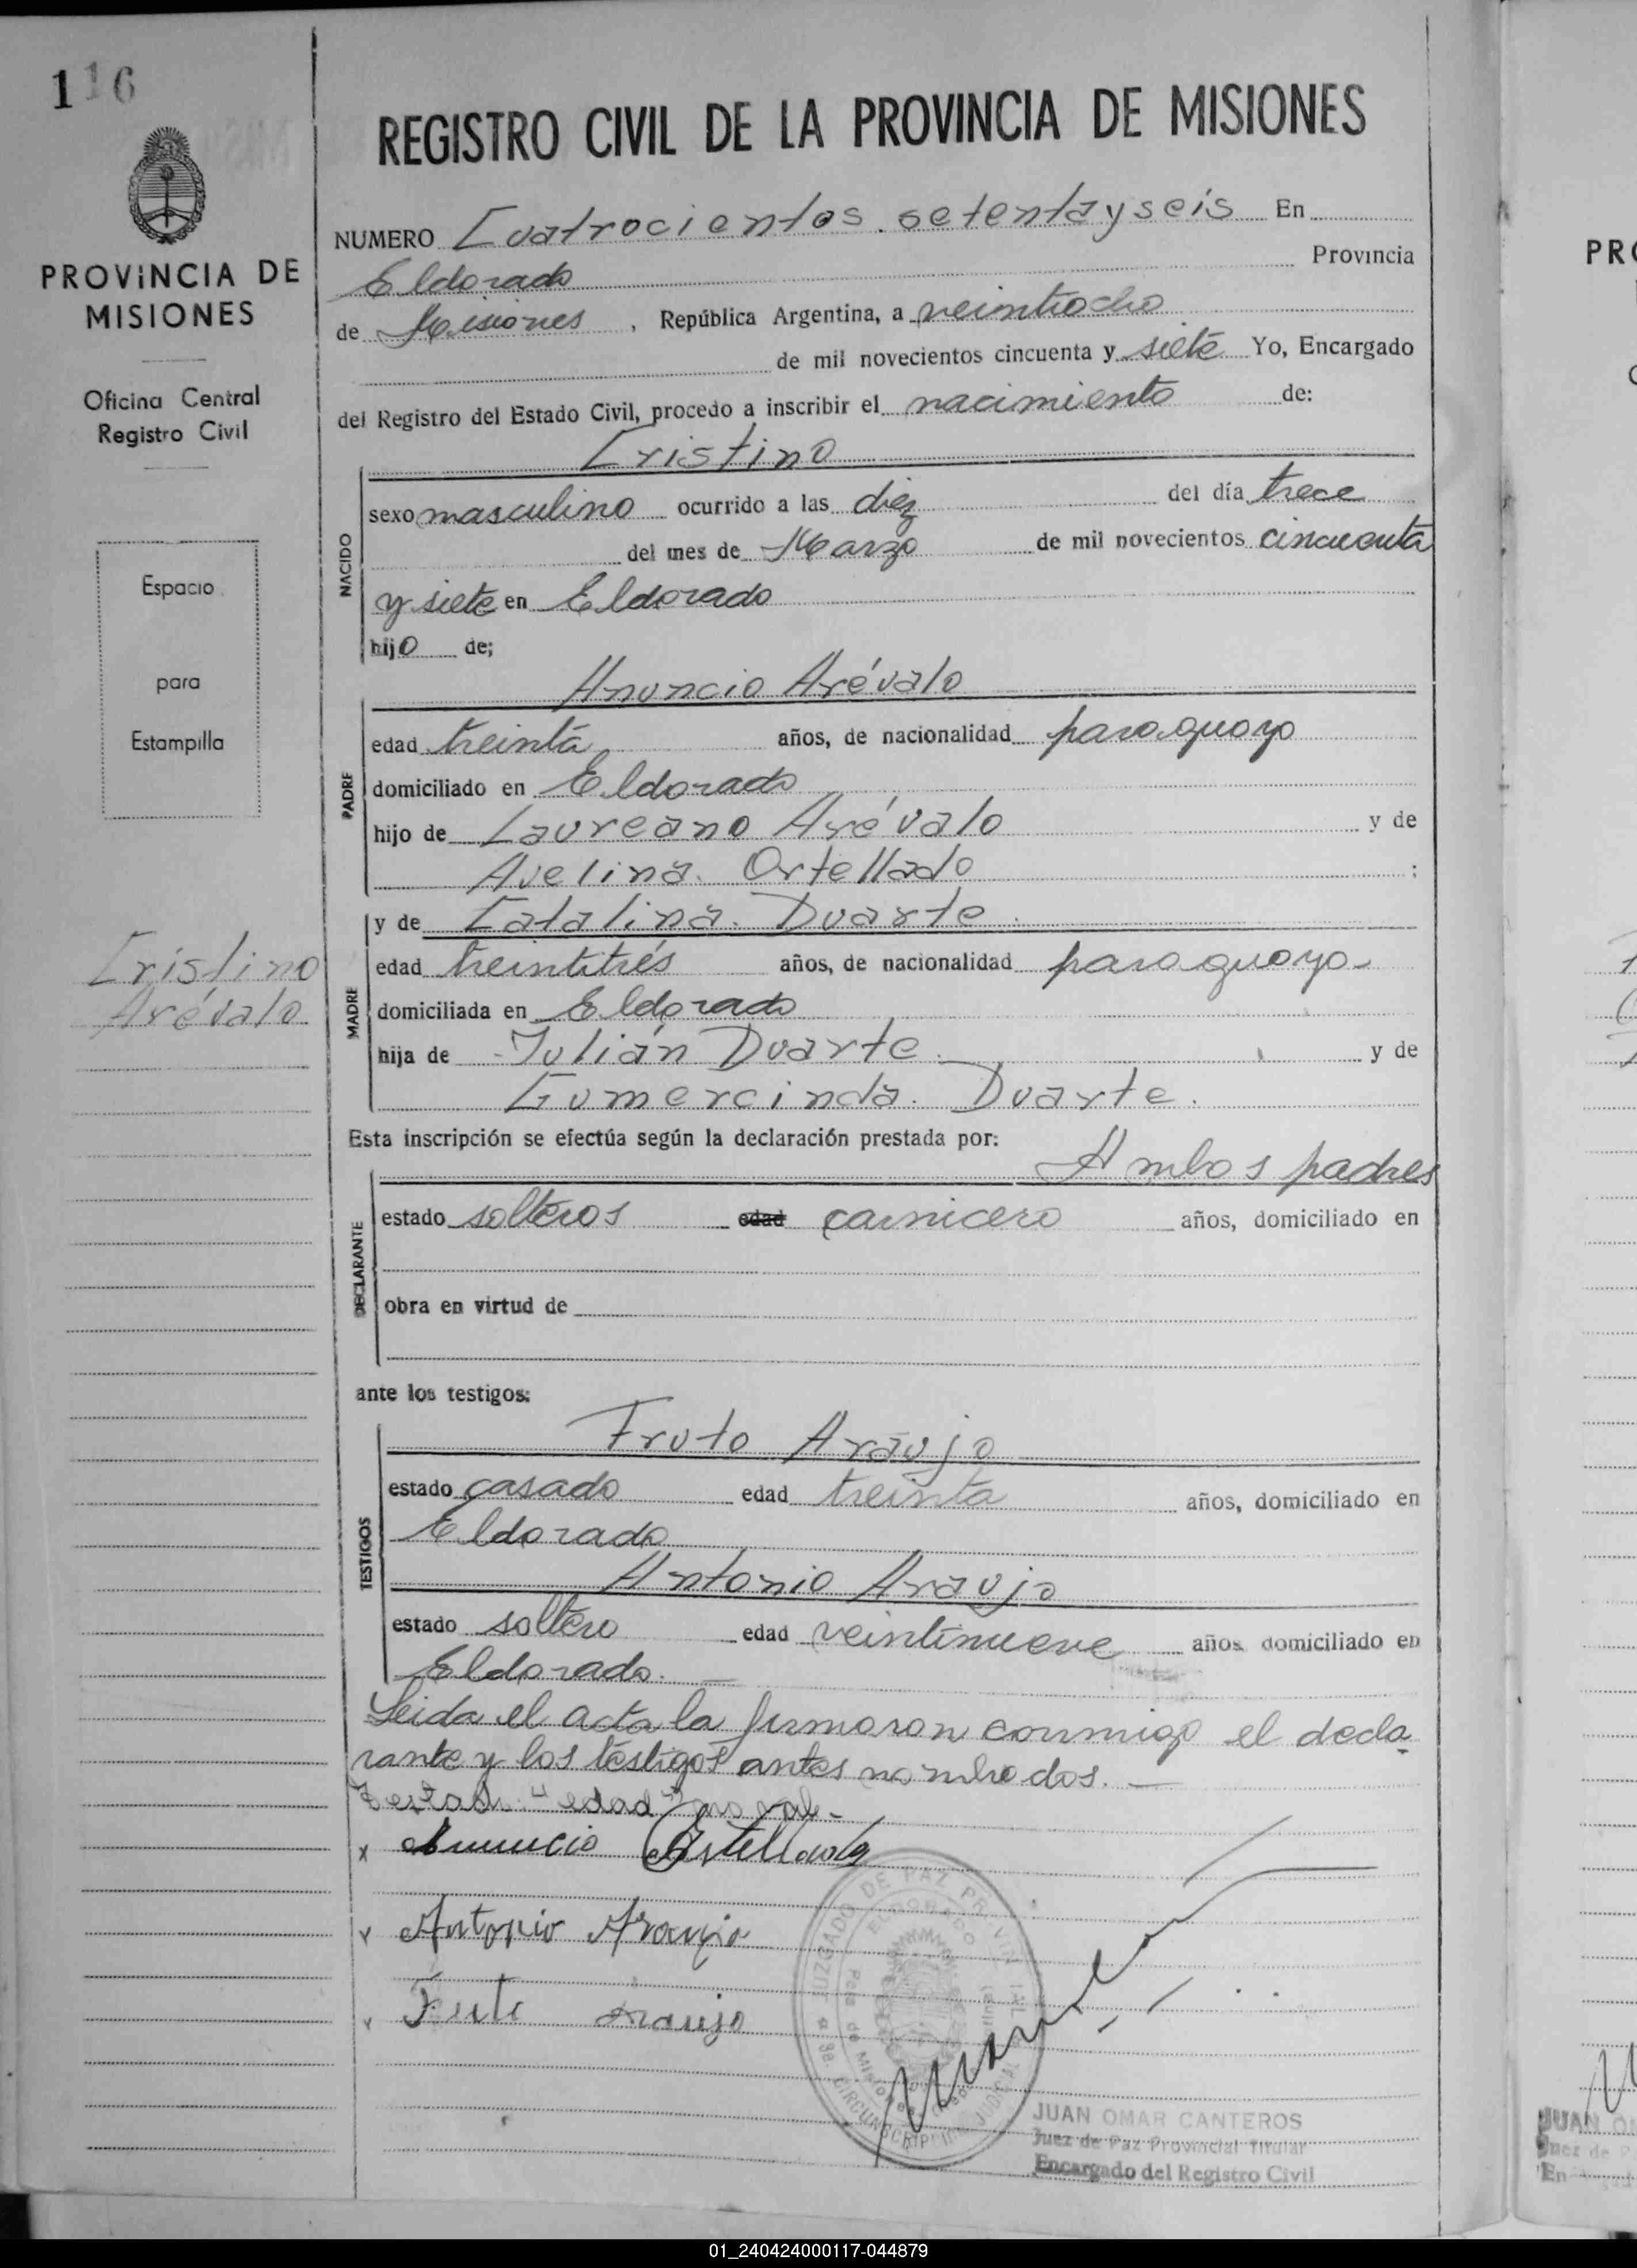 116
PROVINCIA DE
MISIONES
Oficina Central
Registro Civil
Espacio
para
Estampilla
Cristino
Arévalo
REGISTRO CIVIL DE LA PROVINCIA DE MISIONES
NUMERO Cuatrocientos setenta y seis En
Eldorado Provincia
de Misiones, República Argentina, a veintiocho
de mil novecientos cincuenta y siete Yo, Encargado
del Registro del Estado Civil, procedo a inscribir el nacimiento de:
Cristino
NACIDO
sexo masculino ocurrido a las diez del día trece
del mes de Marzo de mil novecientos cincuenta
y siete en Eldorado
hijo de;
Anuncio Arévalo
PADRE
edad treinta años, de nacionalidad paraguayo
domiciliado en Eldorado
hijo de Laureano Arévalo y de
Avelina Ortellado ;
y de Catalina Duarte
MADRE
edad treintitrés años, de nacionalidad paraguaya
domiciliada en Eldorado
hija de Julián Duarte y de
Gumercinda Duarte.
Esta inscripción se efectúa según la declaración prestada por:
Ambos padres
DECLARANTE
estado solteros edad carnicero años, domiciliado en
obra en virtud de
ante los testigos:
Fruto Araujo
TESTIGOS
estado casado edad treinta años, domiciliado en
Eldorado
Antonio Araujo
estado soltero edad veintinueve años domiciliado en
Eldorado.
Leida el acta la firmaron conmigo el decla-
rante y los testigos antes nombrados.
Testado: "edad" no vale-
x Anuncio Ortellado
x Antonio Araujo
x Fruto Araujo
JUZGADO DE PAZ PROVINCIAL
ELDORADO
3a. CIRCUNSCRIPCION JUDICIAL
JUAN OMAR CANTEROS
Juez de Paz Provincial Titular
Encargado del Registro Civil
01_240424000117-044879